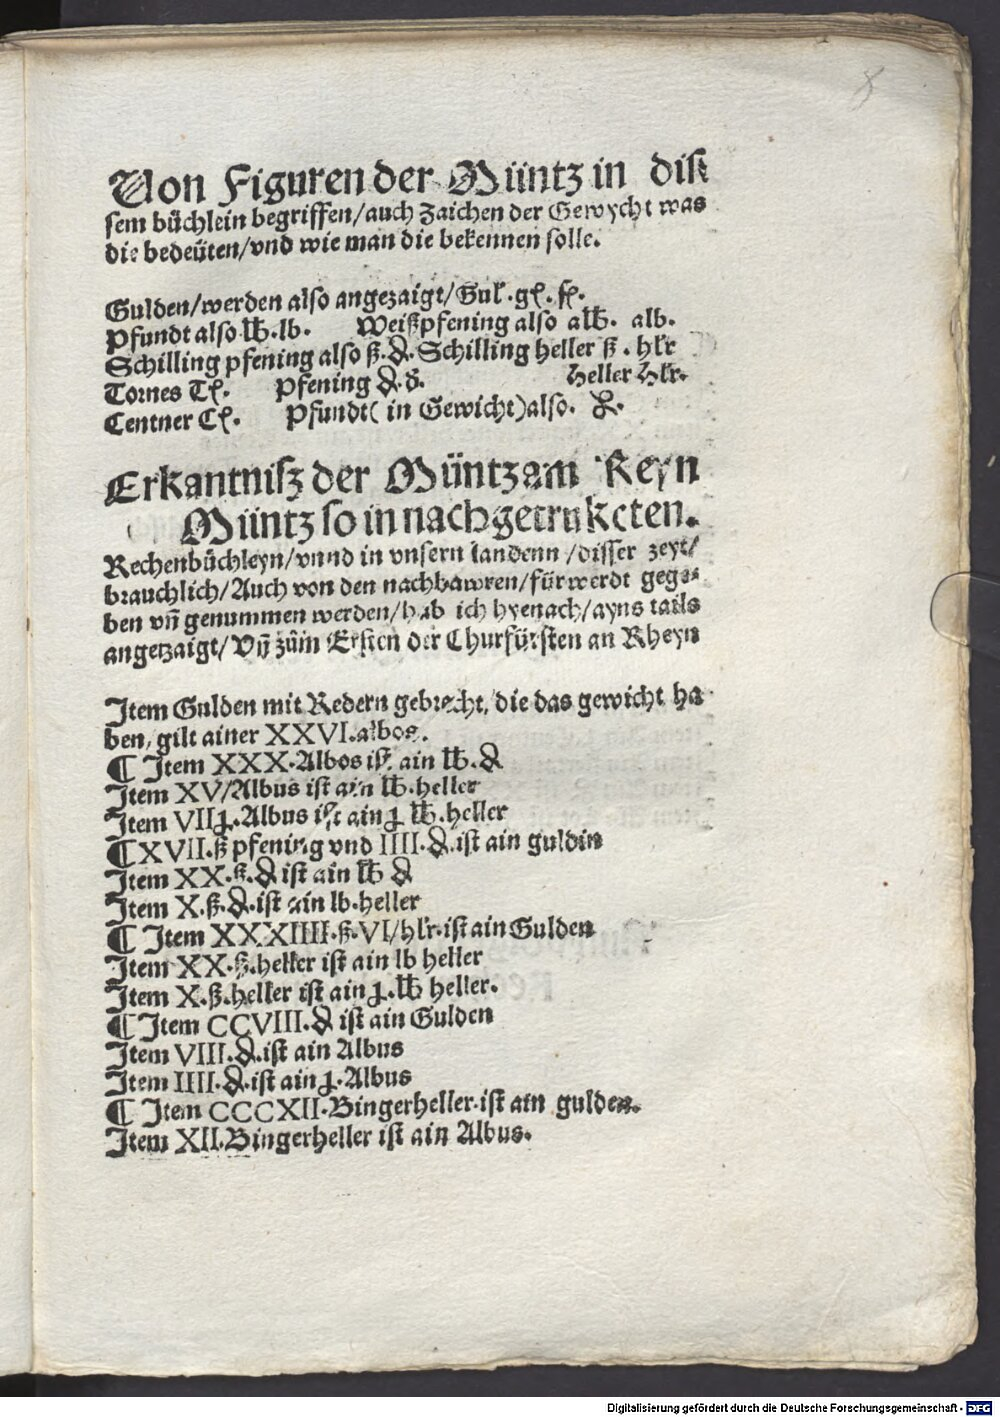 8
Von Figuren der Müntz in dis⸗
sem büchlein begriffen/auch Zaichen der Gewycht was
die bedeüten/vnd wie man die bekennen solle.
Gulden/werden also angezaigt/Gul.gł.fł.
Pfundt also ℔.lb. Weißpfening also al℔. alb.
Schilling pfening also ß.₰.Schilling heller ß.hlr
Tornes Tł. Pfening ₰.δ. Heller Hlr.
Centner Cł. Pfundt( in Gewicht)also.
Erkantnisz der Müntz am Reyn
Müntz so in nachgetrukcten.
Rechenbüchleyn/vnnd in vnsern landenn/disser zeyt/
brauchlich/Auch von den nachbawren/für werdt gege⸗
ben vñ genummen werden/hab ich hyenach/ayns tails
angetzaigt/Vñ zům Ersten der Churfürsten an Rheyn
Item Gulden mit Redern gebrecht/die das gewicht ha
ben/gilt ainer XXVI.albos.
¶ Item XXX.Albos ist ain ℔.₰
Item XV/Albus ist ain ℔.heller
Item VIIɟ.Albus ist ain ɟ ℔.heller
¶XVII.ß pfening vnd IIII.₰.ist ain guldin
Item XX.ß.₰ ist ain ℔ ₰
Item X.ß.₰.ist ain lb.heller
¶ Item XXXIIII.ß.VI/hlr.ist ain Gulden
Item XX.ß.heller ist ain lb heller
Item X.ß.heller ist ain ɟ.℔ heller.
¶ Item CCVIII.₰ ist ain Gulden
Item VIII.₰.ist ain Albus
Item IIII.₰.ist ain ɟ.Albus
¶ Item CCCXII.Bingerheller.ist ain gulden.
Item XII.Bingerheller ist ain Albus.
Digitalisierung gefördert durch die Deutsche Forschungsgemeinschaft - DFG